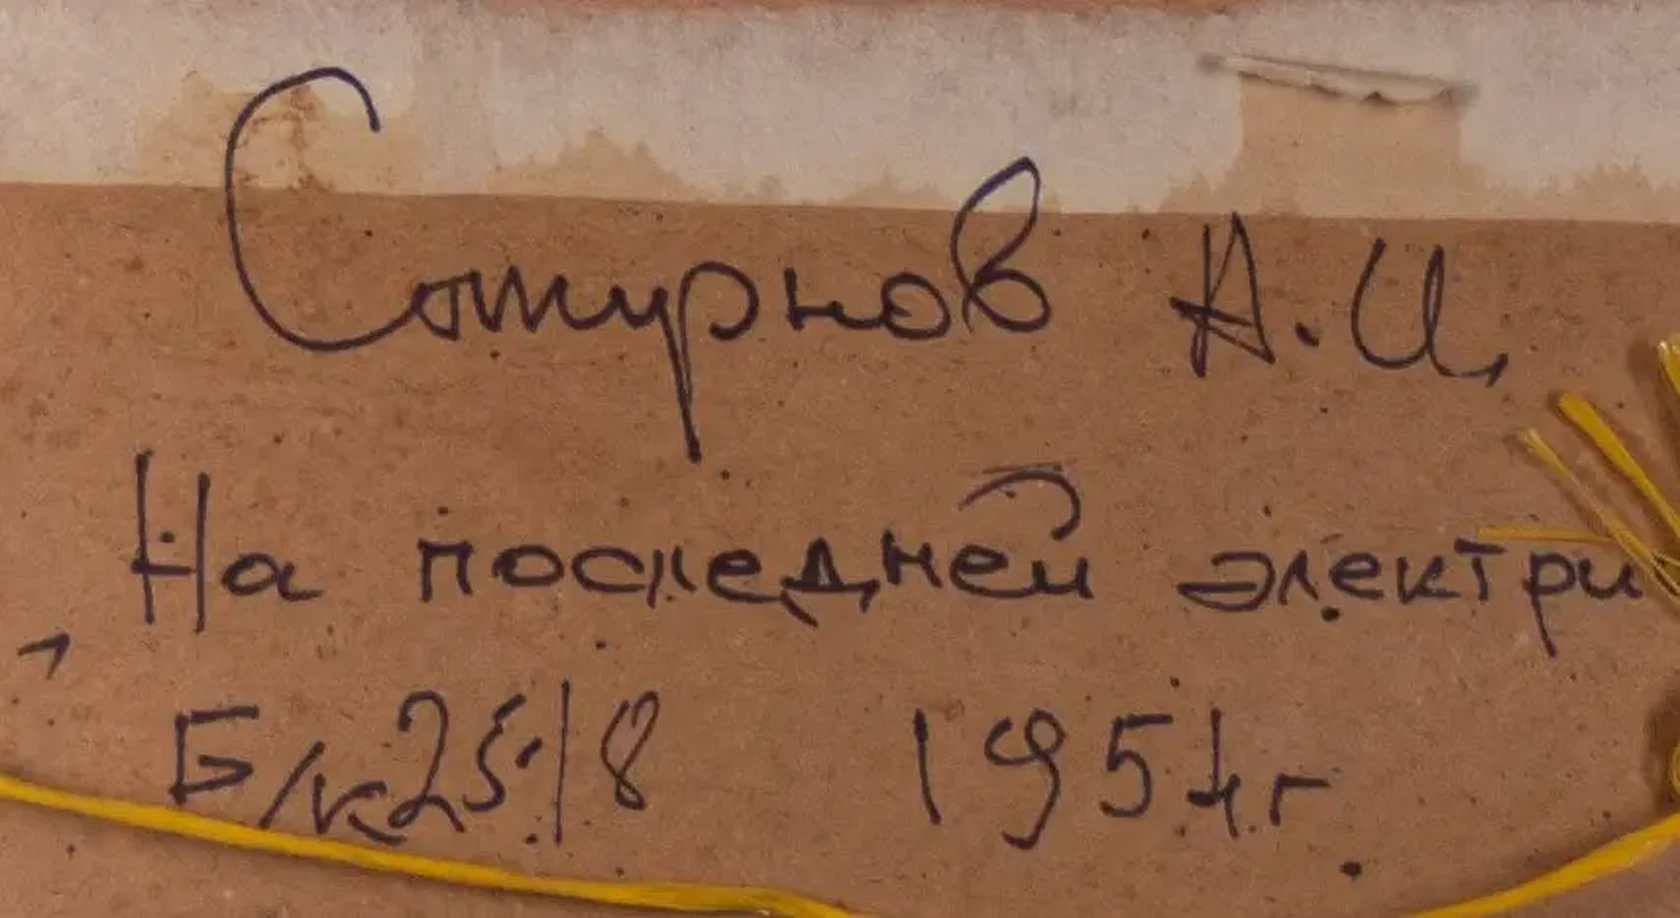 Смирнов А.И.
На последней электри
Б/к25/8 1954г.